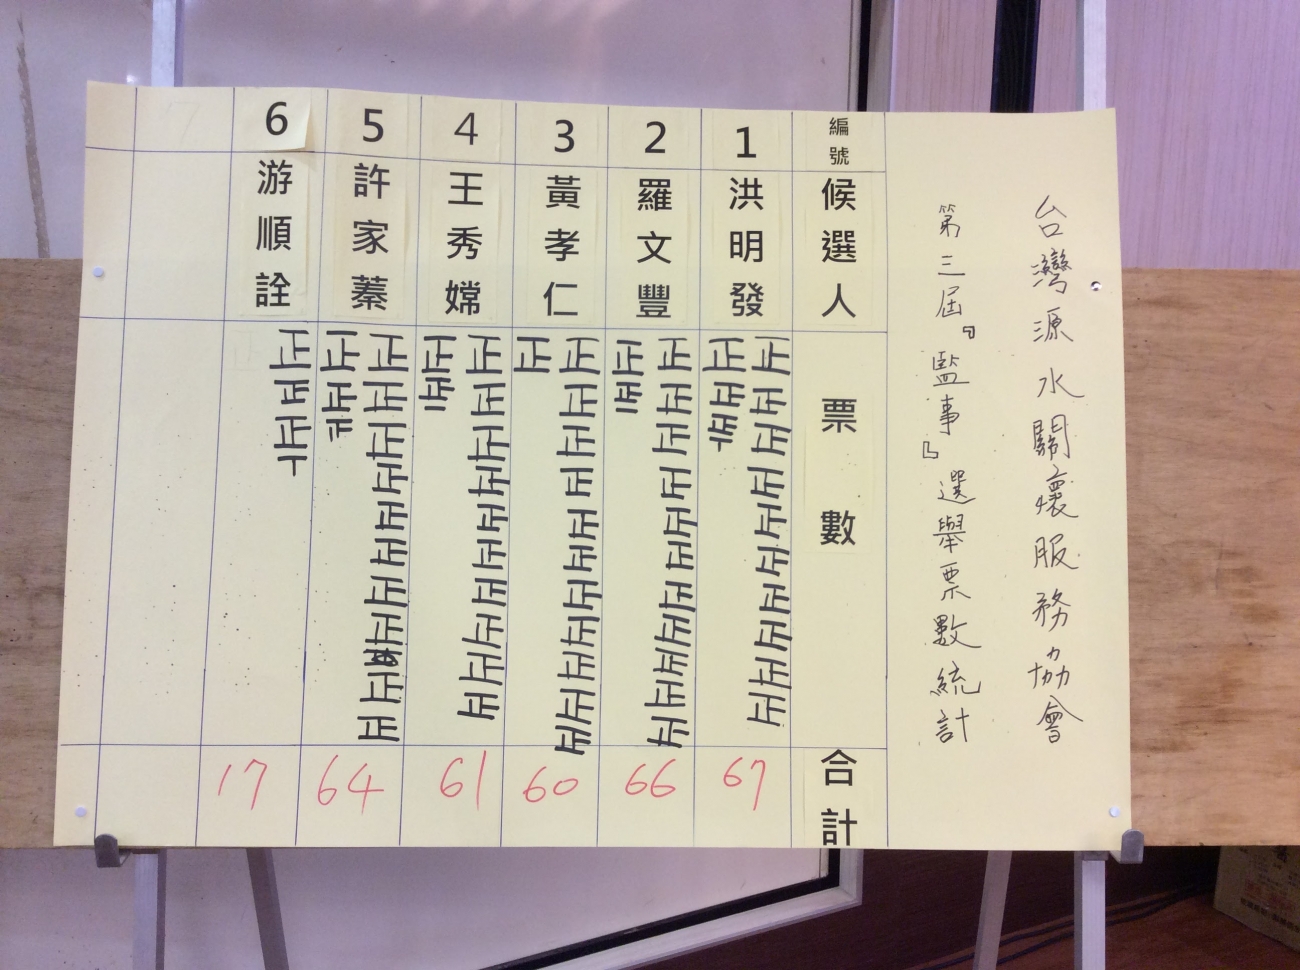 台灣源水關懷服務協會
第三屆『監事』選舉票數統計
編號
候選人
票數
合計
1
洪明發
正正正正正正正正正
正正正
67
2
羅文豐
正正正正正正正正正正
正正
66
3
黃孝仁
正正正正正正正正正正
正
60
4
王秀嫦
正正正正正正正正正
正正
61
5
許家蓁
正正正正正正正正正正
正正
64
6
游順詮
正正正
17